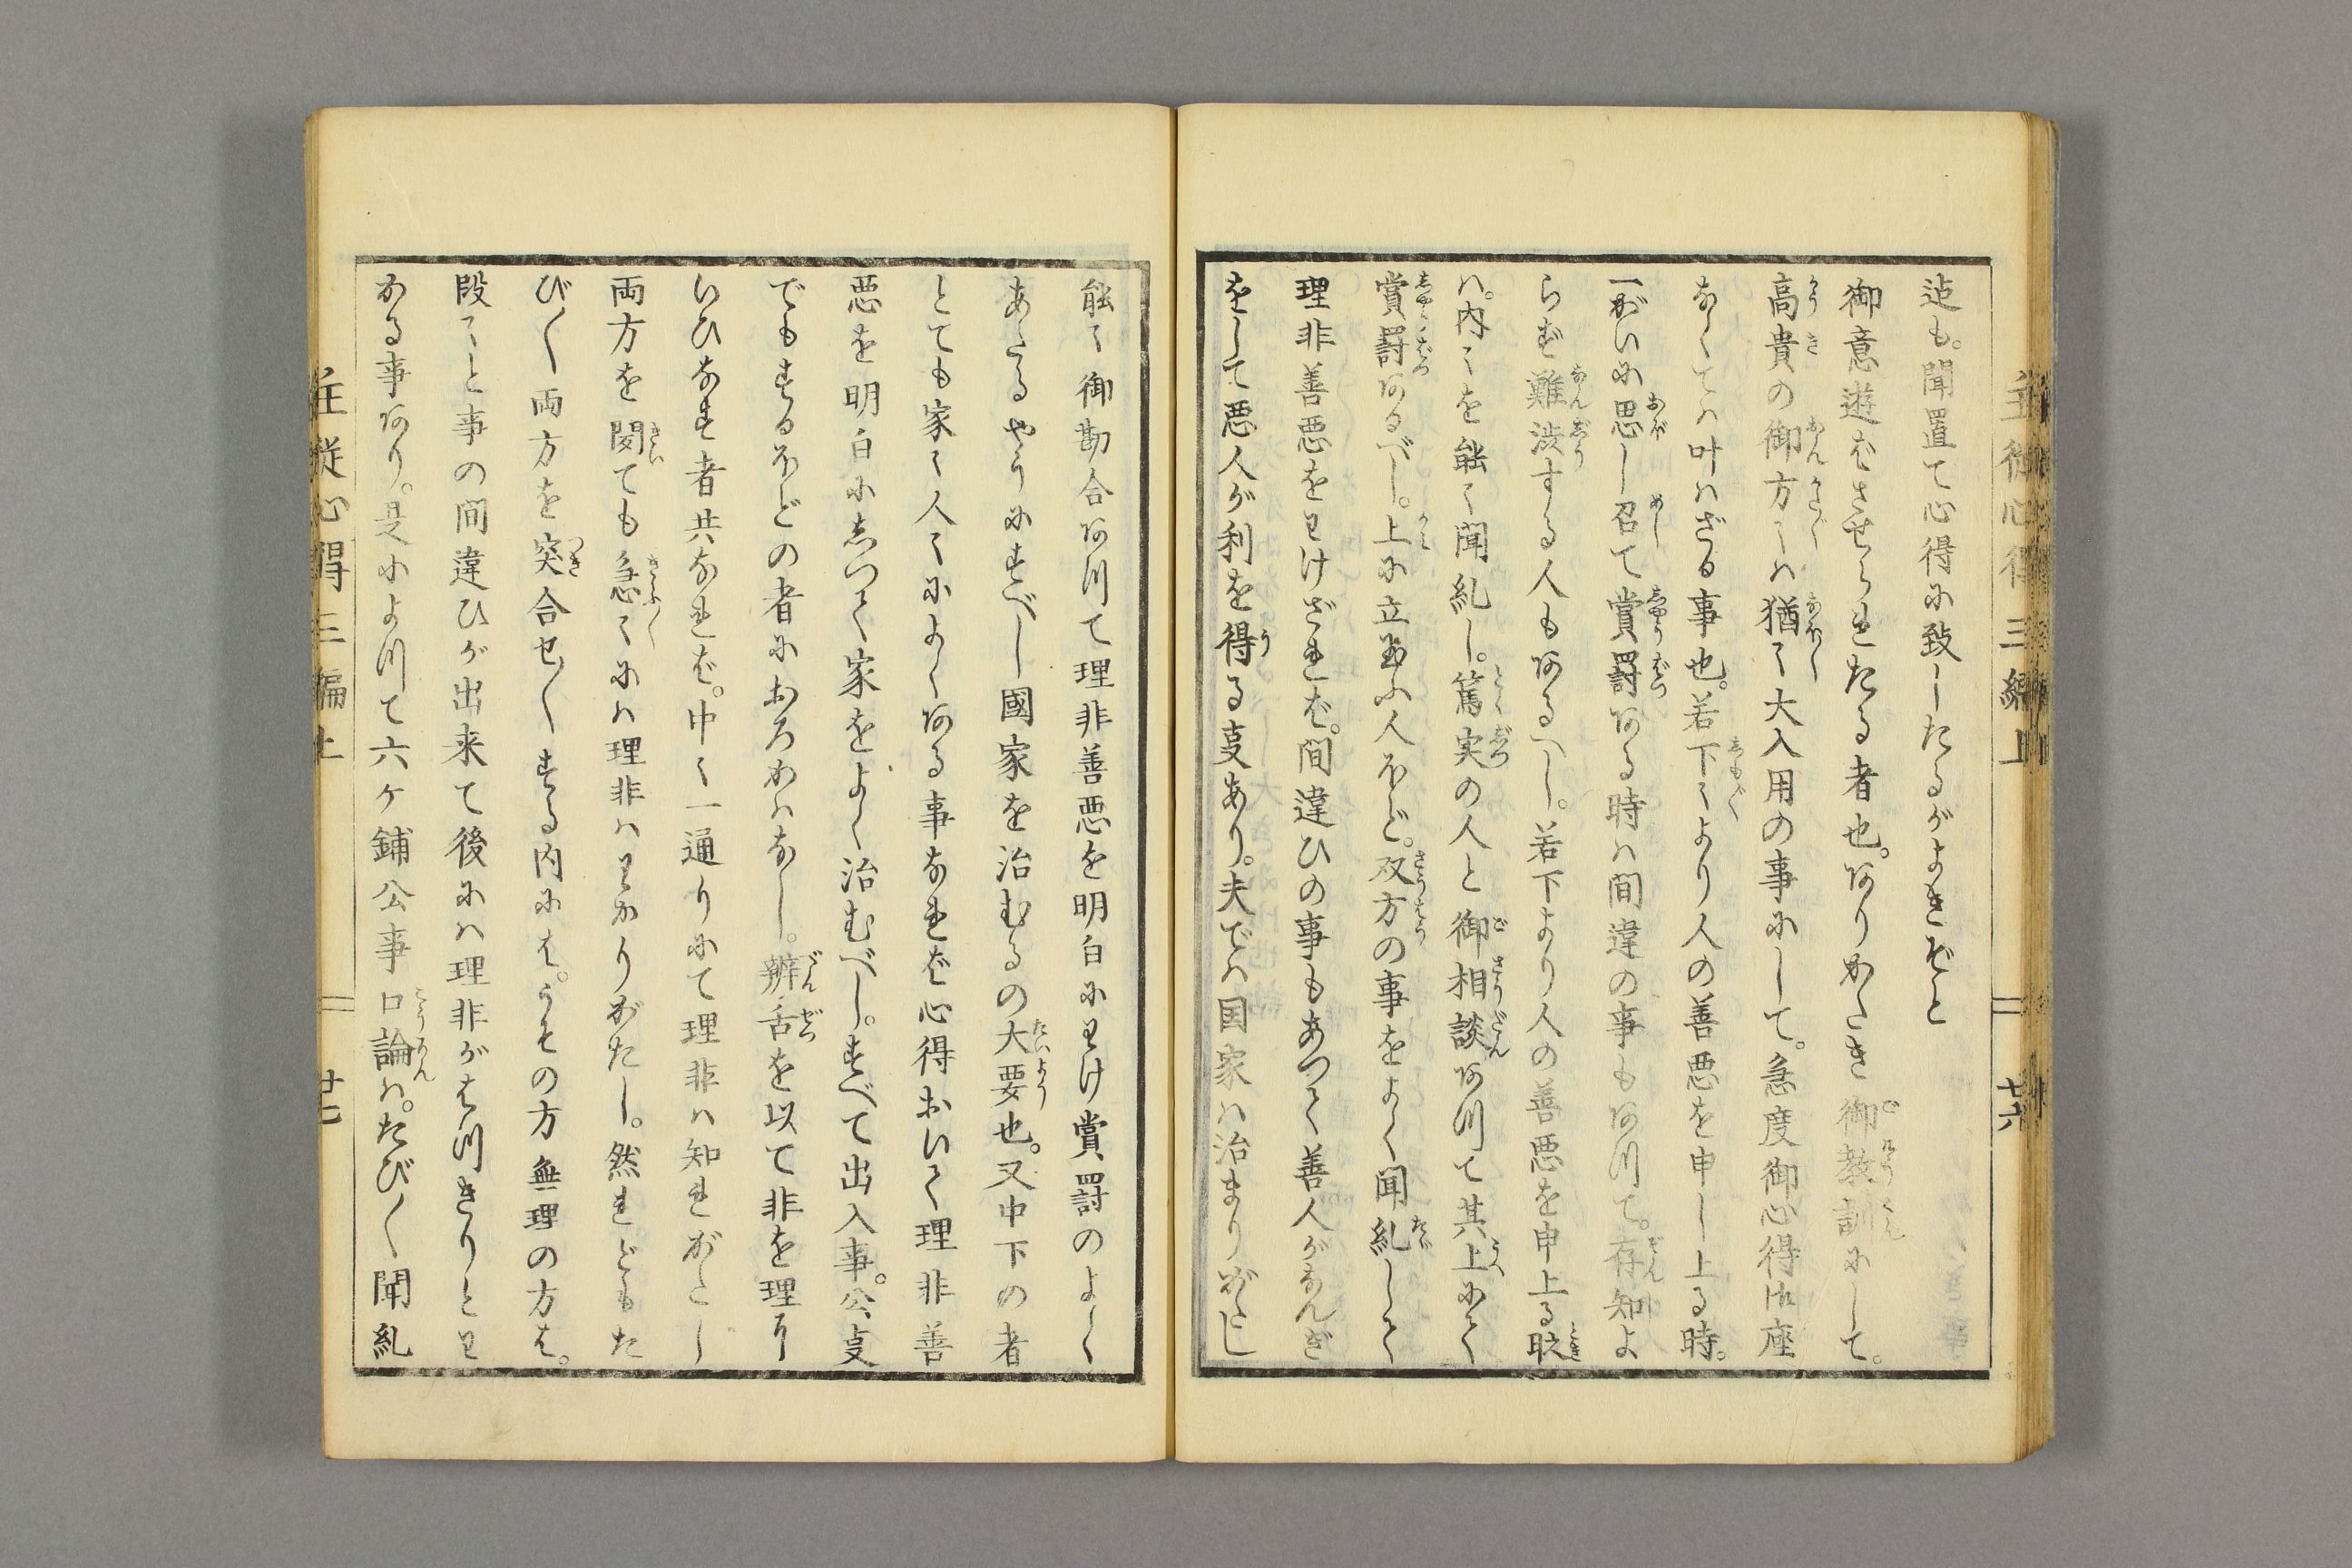 迠も。聞置て心得に致したるがよきぞと
御意遊ばさせられたる者也。ありがたき御教訓にして。
高貴の御方々は猶々大入用の事にして。急度御心得御座
なくては叶はざる事也。若下々より人の善悪を申し上る時。
一がいに思し召て賞罰ある時は間違の事もあつて。存知よ
らず難渋する人もあるべし。若下より人の善悪を申上る時
は。内々を能く聞糺し。篤実の人と御相談あつて其上にて
賞罰あるべし。上に立玉ふ人ほど。双方の事をよく聞糺して
理非善悪をわけざれば。間違ひの事もあつて善人がなんぎ
をして悪人が利を得る事あり。夫では国家は治まりがたし
主従心得三編上 廿六
能々御勘合あつて理非善悪を明白にわけ賞罰のよく
あたるやうにすべし國家を治むるの大要也。又中下の者
とても家々人々によくある事なれば心得おいて理非善
悪を明白にしつて家をよく治むべし。すべて出入事。公事
でもするほどの者におろかはなし。辨舌を以て非を理に
いひなす者共なれば。中々一通りにて理非は知れがたし
両方を聞ても急々には理非はわかりがたし。然れどもた
び〱両方を突合せ〱する内には。うその方無理の方は。
段々と事の間違ひが出来て後には理非がはつきりとわ
かる事あり。是によつて六ケ鋪公事口論は。たび〱聞糺
主従心得三編上 廿七